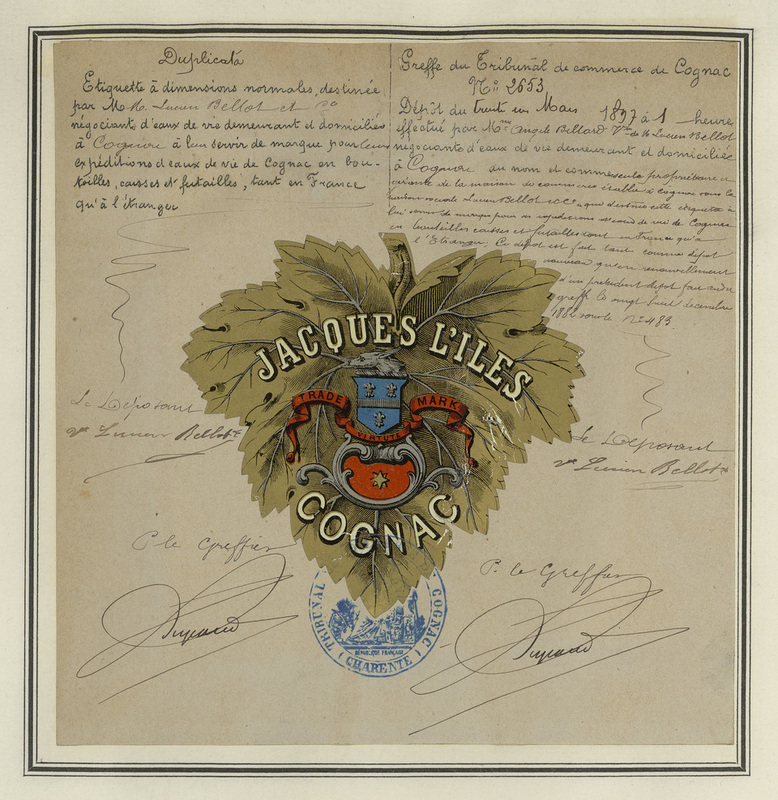 Duplicata
Etiquette à dimensions normales, destinée
par M.M. Lucien Bellot et Co
négociants d'eaux de vie demeurant et domiciliés
à Cognac à leur servir de marque pour leurs
expéditions d'eaux de vie de Cognac en bou-
teilles, caisses et futailles, tant en France
qu'à l'étranger
Greffe du Tribunal de commerce de Cognac
No 2653
Dépôt du trente un Mars 1897 à 1 heure
effectué par Mme Angèle Billard Vve de Mr Lucien Bellot
négociante d'eaux de vie demeurant et domiciliée
à Cognac au nom et comme seule propriétaire et
gérante de la maison de commerce établie à Cognac sous la
raison sociale Lucien Bellot et Co a que destinée cette étiquette à
lui servir de marque pour ses expéditions d'eaux de vie de Cognac
en bouteilles caisses et futailles tant en France qu'à
l'Etranger. Ce dépôt est fait tant comme dépôt
nouveau qu'en renouvellement
d'un précédent dépôt fait audit
greffe le vingt huit décembre
1882 sous le No 483
JACQUES L'ILES
TRADE MARK
VIRTUTE
COGNAC
Le Déposant
Vve Lucien Bellot
Le Déposant
Vve Lucien Bellot
P. le Greffier
P. le Greffier
TRIBUNAL COGNAC
RÉPUBLIQUE FRANÇAISE
(CHARENTE)